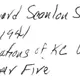 ard Scanlon S
1941
ations of KC
ar Fire